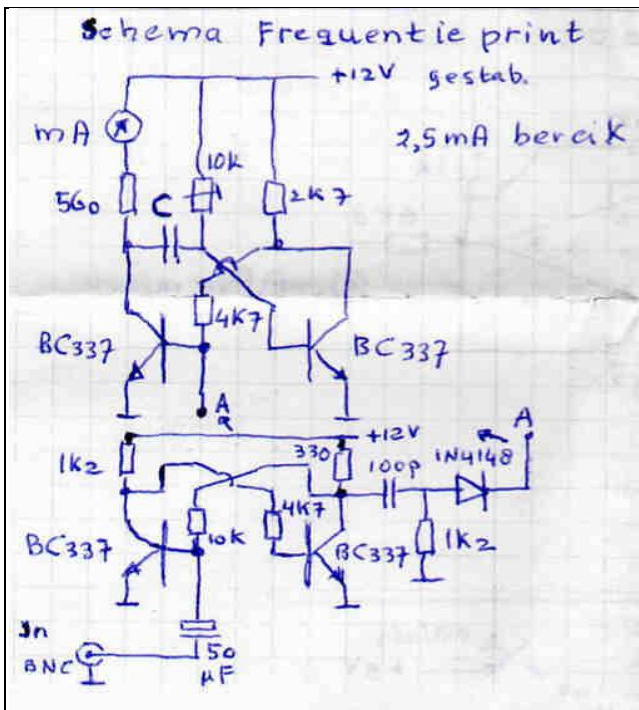 Schema Frequentie print
+12V gestab.
mA
2,5mA bereik
10K
560
C
2K7
4K7
BC337
BC337
A
+12V
A
1K2
330
100p
1N4148
4K7
10K
BC337
BC337
1K2
In
BNC
50
µF